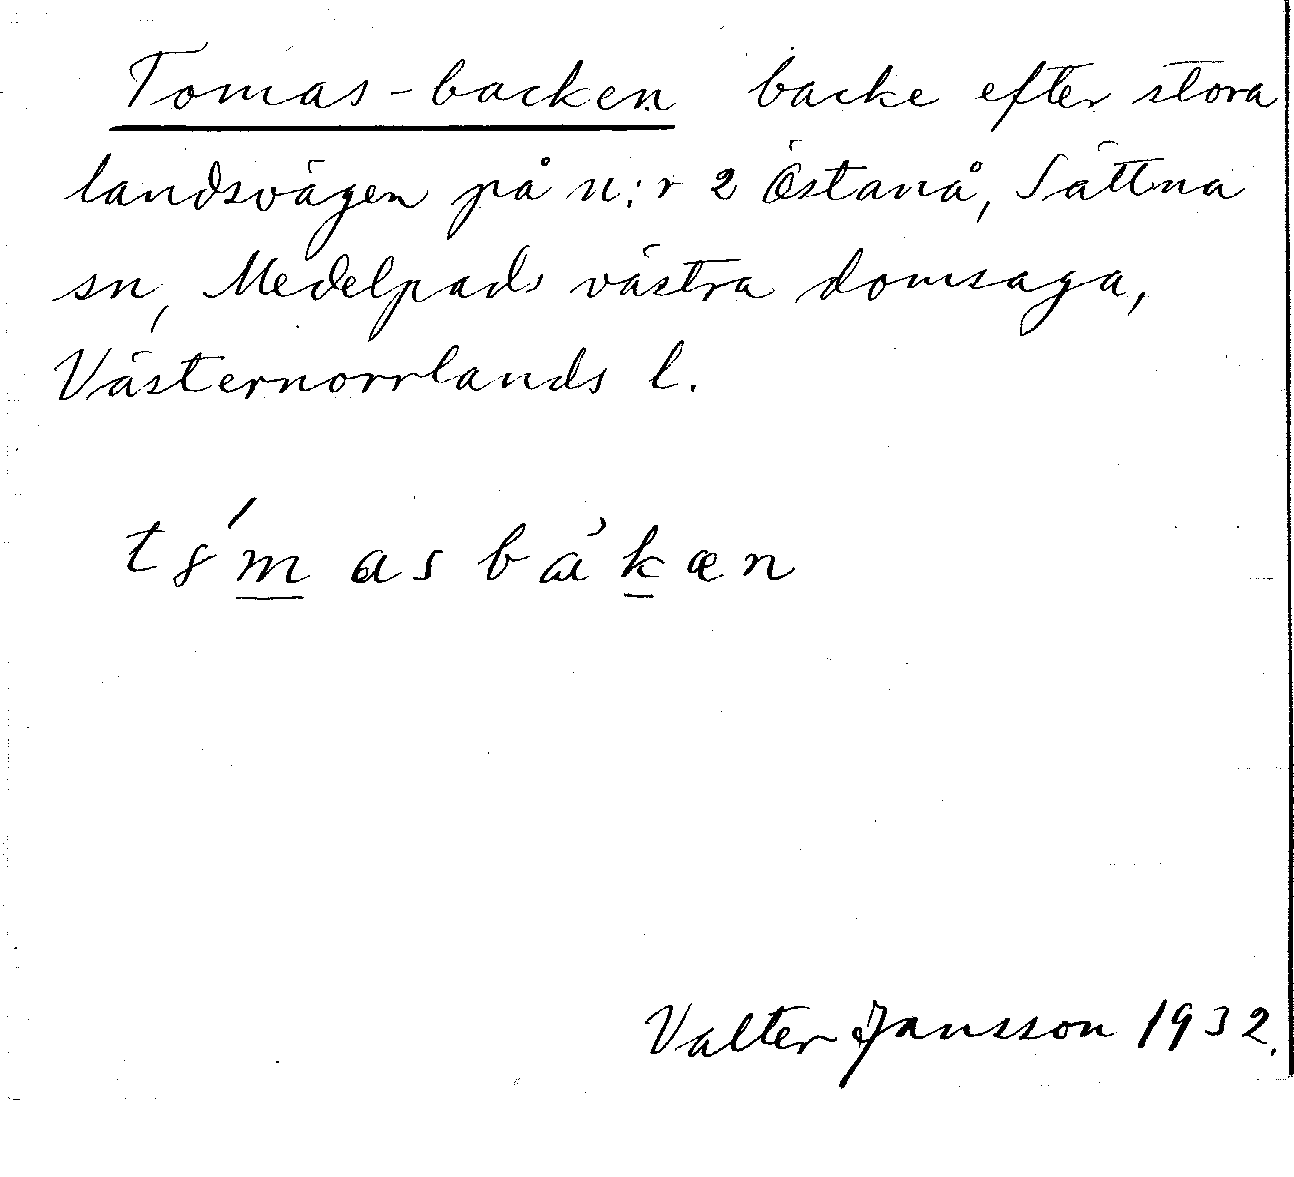 Tomas-backen backe efter stora
landsvägen på n:r 2 Östanå, Sättna
sn, Medelpads västra domsaga,
Västernorrlands l.
Valter Jansson 1932.